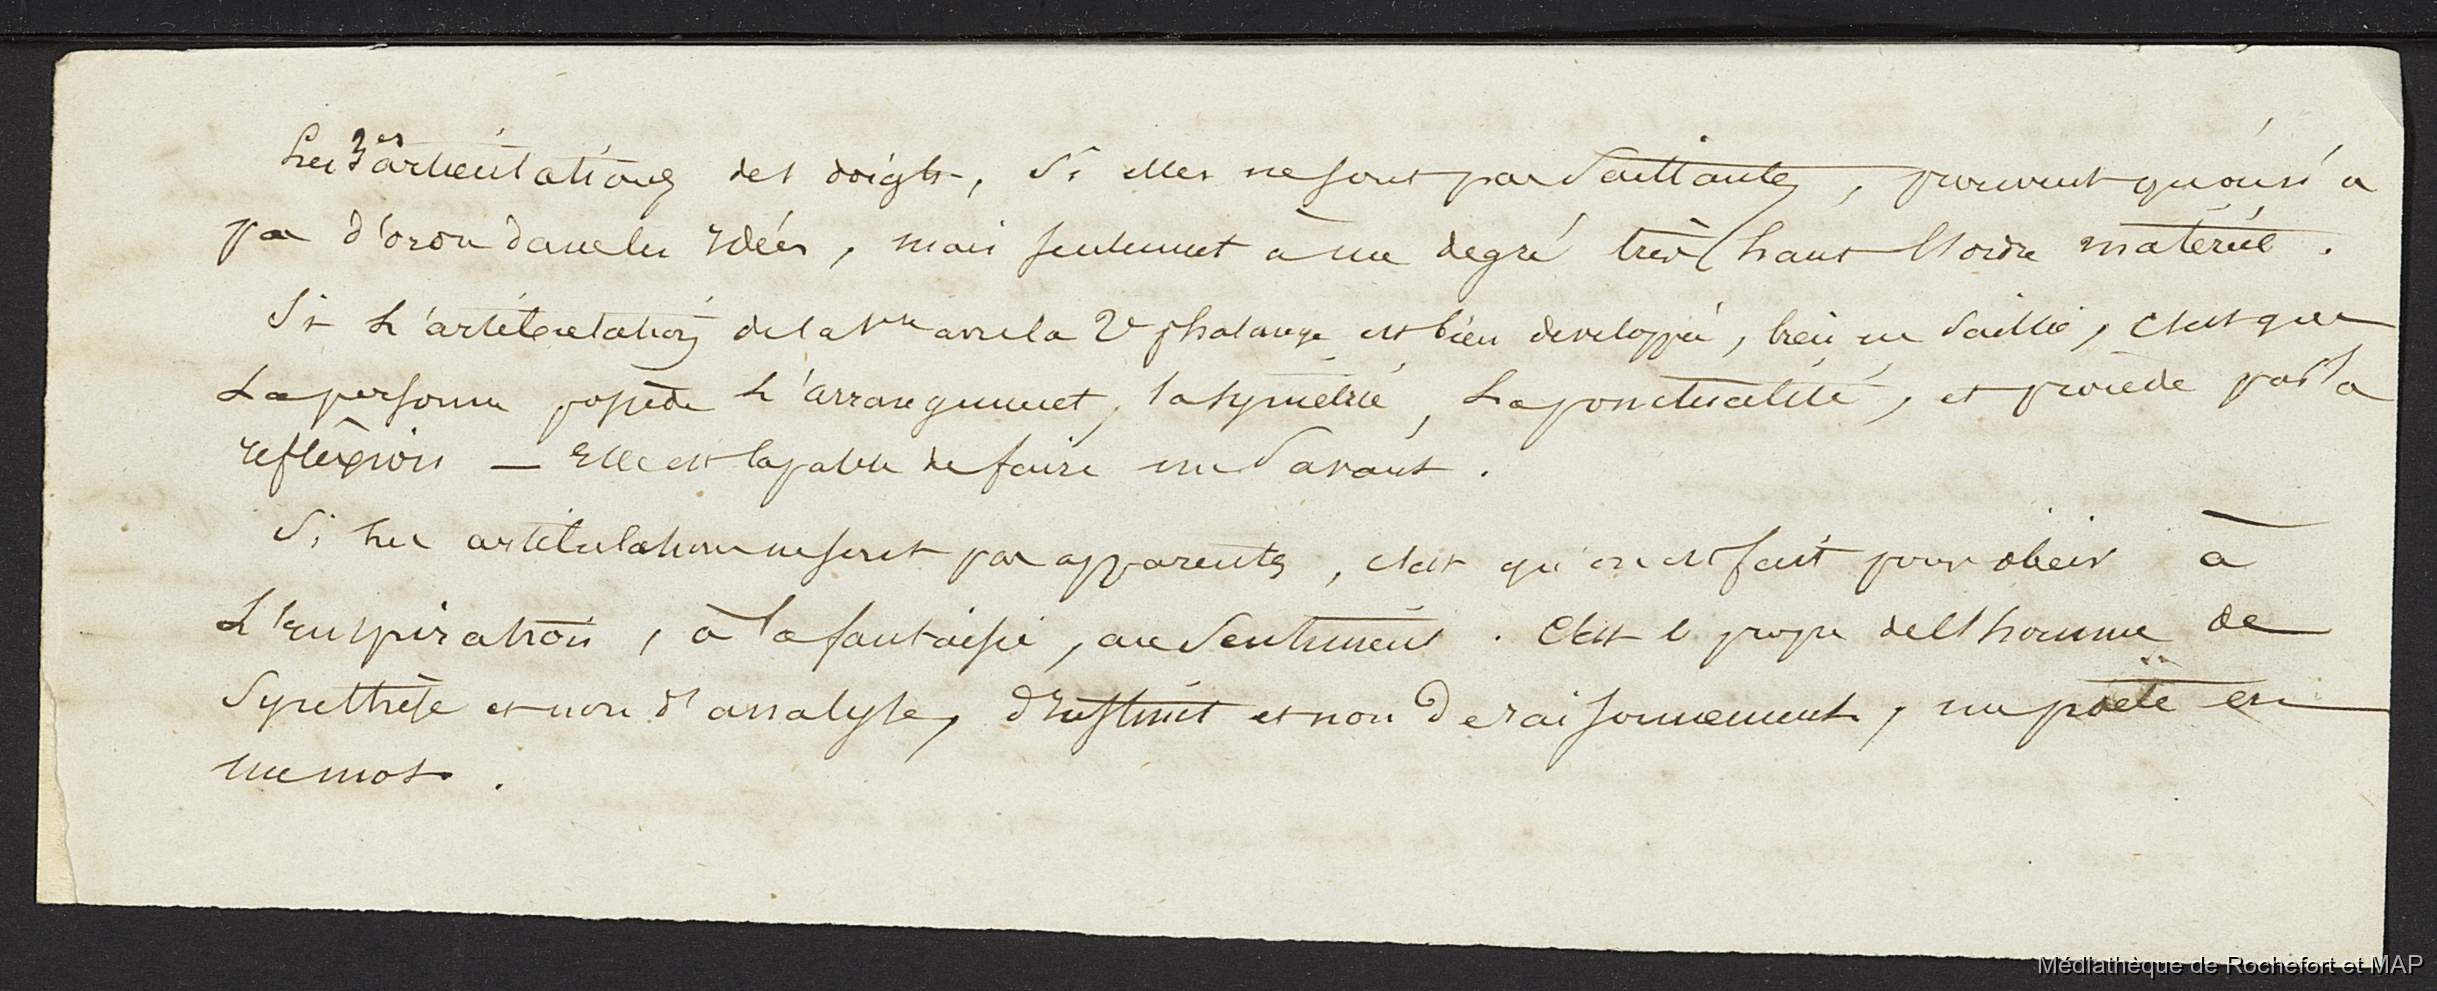 Les 3es articulations des doigts, si elles ne sont pas saillantes, prouvent qu'on n'a
pas d'ordre dans les idées, mais seulement à un degré très haut l'ordre matériel.
Si L'articulation de la 1re avec la 2e phalange est bien developpée, bien en saillie, c'est que
La personne possède L'arrangement, la symétrie, La ponctualité, et procède par la
reflexion — Elle est capable de faire un savant.
Si Les articulations ne sont pas apparentes, c'est qu'on est fait pour obeir à
L'inspiration, à la fantaisie, au sentiment. C'est le propre de l'homme de
Synthèse et non d'analyse, d'instinct et non de raisonnement, un poëte en
un mot.
Médiathèque de Rochefort et MAP